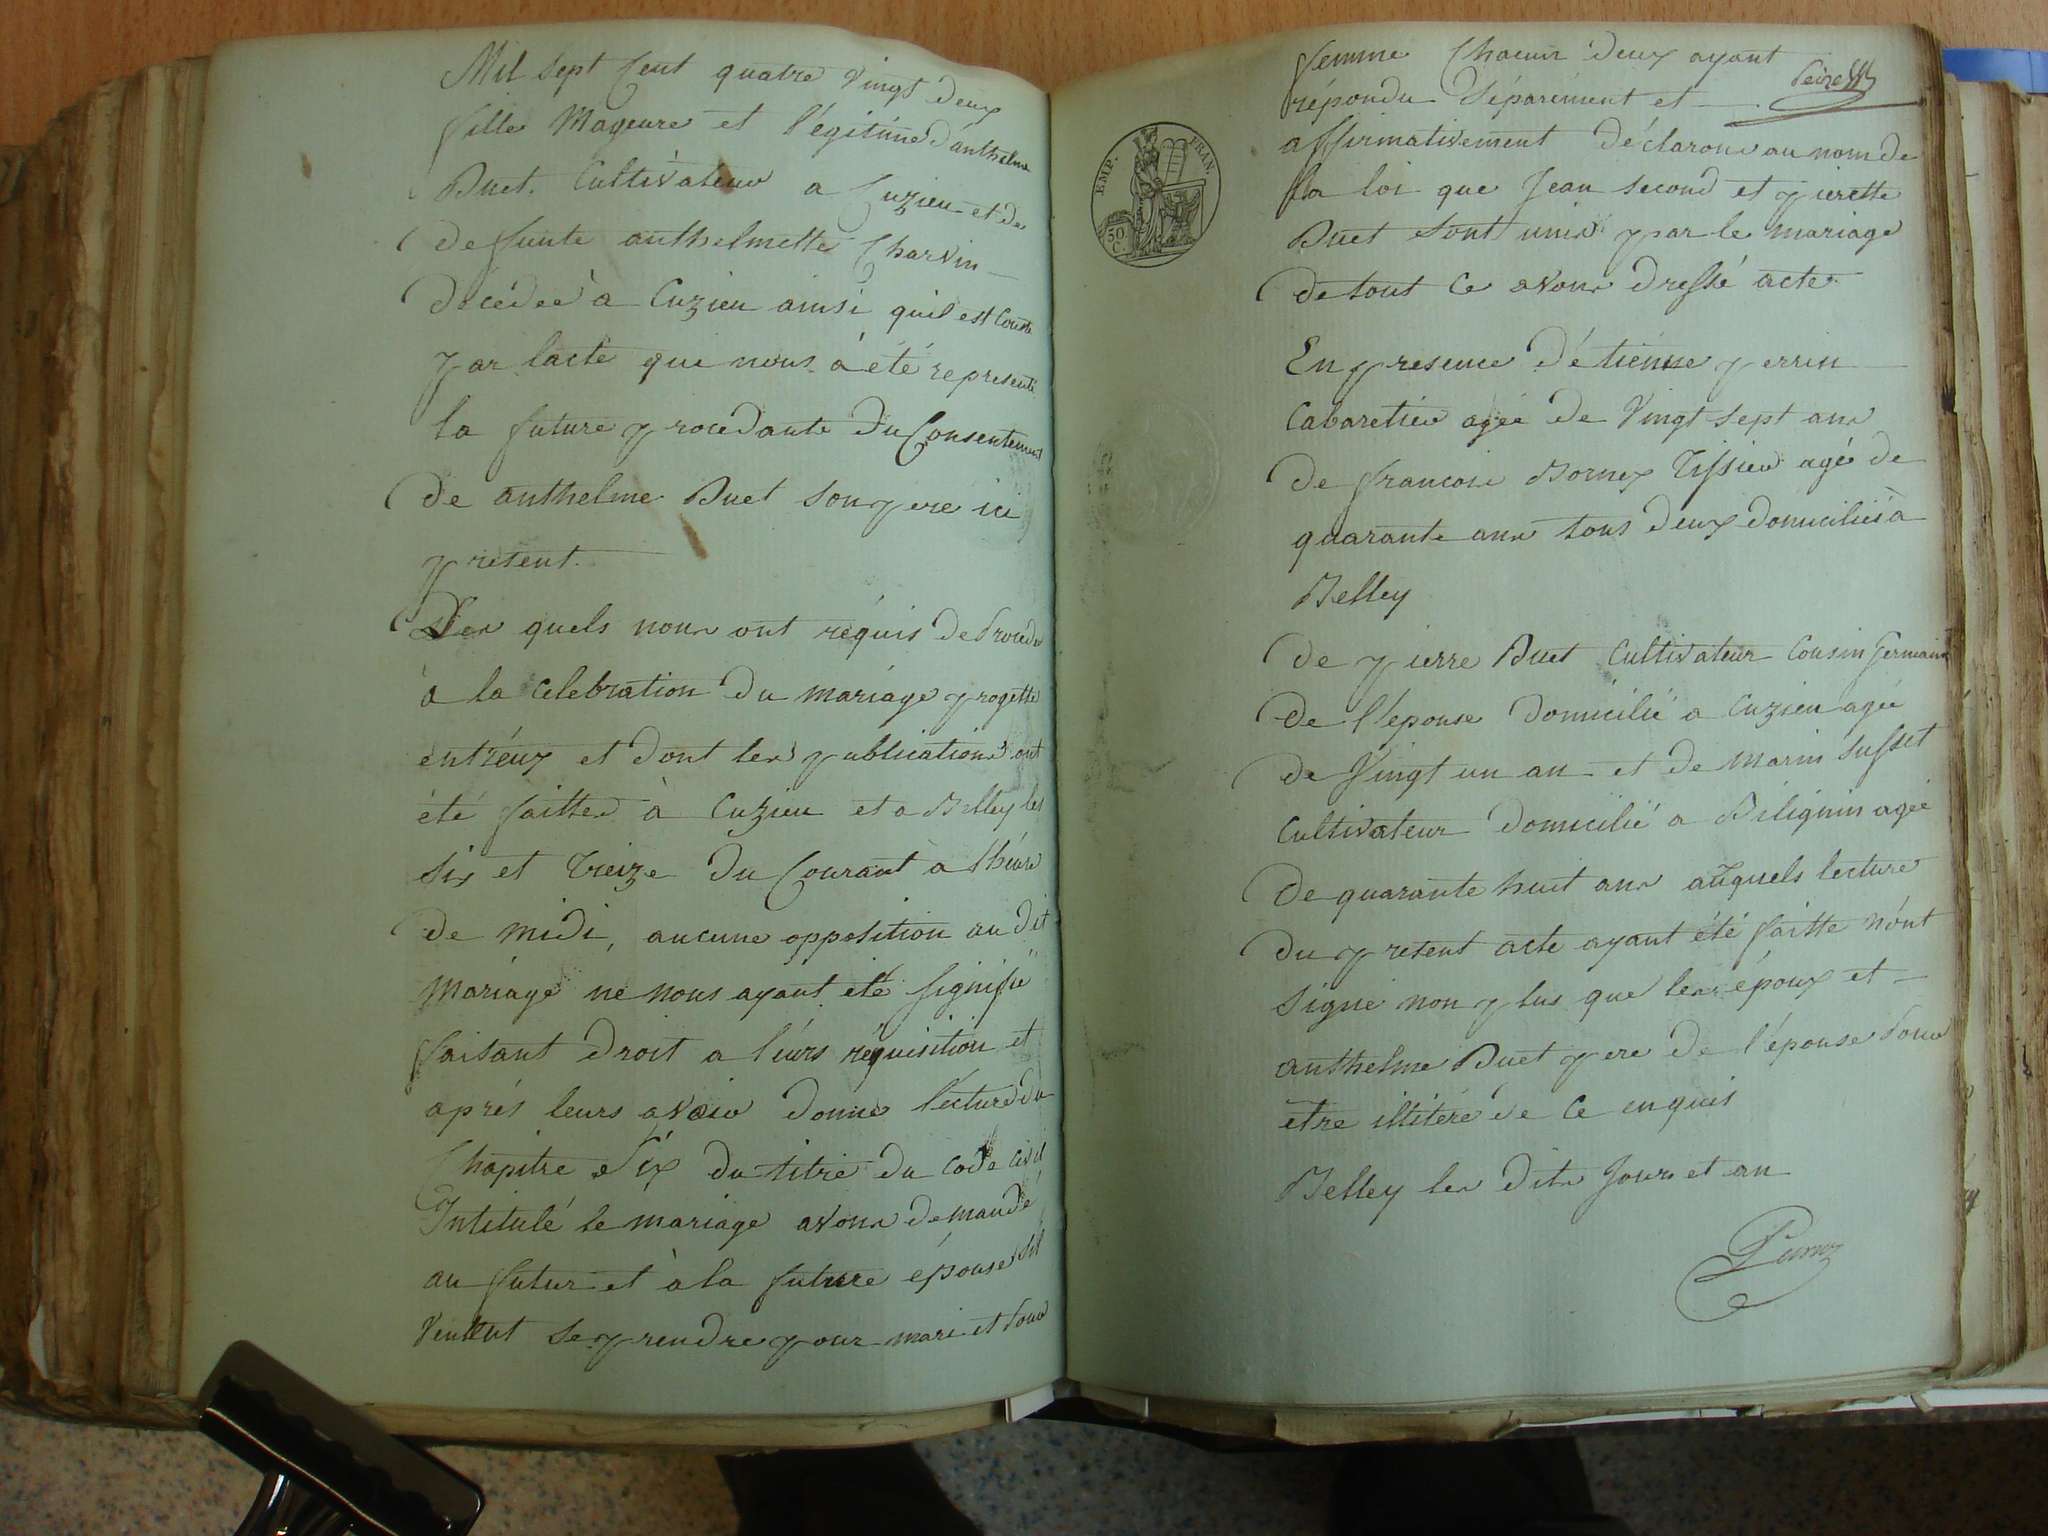 Mil sept Cent quatre Vingt Deux
fille Mageure et l'égitime d'anthelme
Buet Cultivateur a Cuzieu et de
defunte anthelmette Charvin
décédée à Cuzieu ainsi quil est Conste
par lacte que nous a été representé
la future procedante du Consentement
de anthelme Buet son pere ici
present.
Les quels nous ont réquis de Proceder
à la celebration du mariage progetté
entr'eux et dont les publications ont
été faittes à Cuzieu et a Belley les
Six et treize du Courant à lheure
de midi, aucune opposition au dit
mariage ne nous ayant été Signifié
faisant droit a leurs réquisition et
aprés leurs avoir donné lecture du
Chapitre Six du titre du code civil
Intitulé le mariage avons demandé
au futur et à la future épouse sil
veullent se prendre pour mari et pour
femme Chacun deux ayant
répondu Séparément et
affirmativement Déclarons au nom de
la loi que Jean Second et pierette
Buet sont unis par le mariage
de tout ce avons dressé acte.
EMP. FRAN.
50 C.
En presence d'étienne perrin
Cabaretier agée de Vingt sept ans
de francois Bornex Tissier agé de
quarante ans tous deux domiciliés à
Belley
de pierre Buet Cultivateur Cousin Germain
de l'epouse domicilié a Cuzieu agée
de Vingt un an et de marin Suffet
Cultivateur domicilié a Bilignin agée
de quarante huit ans auquels lecture
du present acte ayant été faitte n'ont
Signé non plus que les époux et
anthelme Buet pere de l'épouse pour
etre illitéré de ce enquis
Belley les dits Jours et an